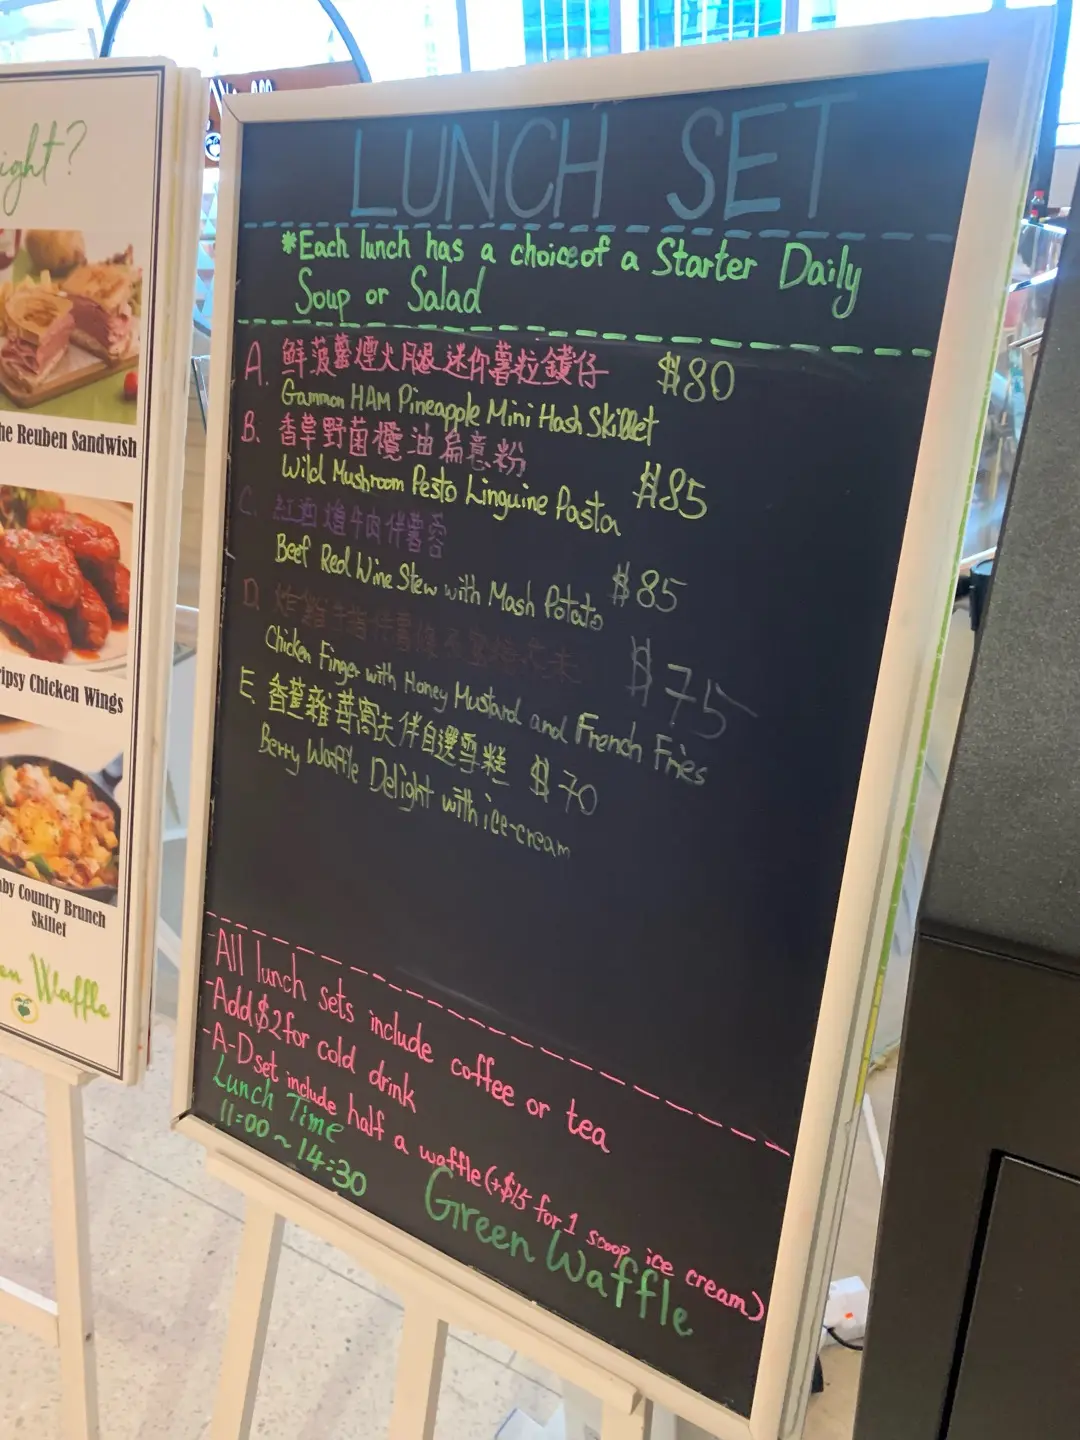 ight?
he Reuben Sandwish
ipsy Chicken Wings
by Country Brunch
Skillet
en Waffle
LUNCH SET
*Each lunch has a choice of a Starter Daily
Soup or Salad
A. 鮮菠蘿煙火腿迷你薯粒鑊仔 $80
Gammon HAM Pineapple Mini Hash Skillet
B. 香草野菌欖油扁意粉
Wild Mushroom Pesto Linguine Pasta $85
C. 紅酒燴牛肉伴薯蓉
Beef Red Wine Stew with Mash Potato $85
D. 炸雞手指伴薯條 $75
Chicken Finger with Honey Mustard and French Fries
E. 香蕉雜莓窩夫伴自選雪糕 $70
Berry Waffle Delight with ice-cream
-All lunch sets include coffee or tea
-Add $2 for cold drink
-A-D set include half a waffle (+$15 for 1 scoop ice cream)
Lunch Time
11:00~14:30
Green Waffle